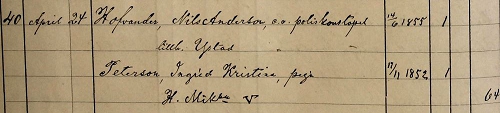 40 April 24 Hofvander, Nils Anderson, e.o. poliskonstapel 14/6 1855 1
tillh. Ystad
Peterson, Ingrid Kristina, piga 17/11 1852 1
H. Mik V
64